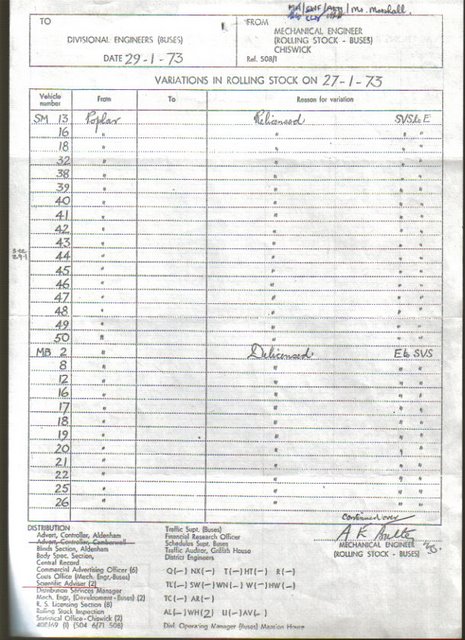 MR/ / / Mr. Marshall.
TO
FROM
DIVISIONAL ENGINEERS (BUSES)
MECHANICAL ENGINEER
(ROLLING STOCK - BUSES)
CHISWICK
DATE 29-1-73
Ref. 508/1
VARIATIONS IN ROLLING STOCK ON 27-1-73
Vehicle number From To Reason for variation
SM 13 Poplar Relicensed SVS to E
16 " " " "
18 " " " "
32 " " " "
38 " " " "
39 " " " "
40 " " " "
41 " " " "
42 " " " "
43 " " " "
44 " " " "
45 " " " "
46 " " " "
47 " " " "
48 " " " "
49 " " " "
50 " " " "
MB 2 " Delicensed E to SVS
8 " " " "
12 " " " "
16 " " " "
17 " " " "
18 " " " "
19 " " " "
20 " " " "
21 " " " "
22 " " " "
25 " " " "
26 " " " "
continued over
DISTRIBUTION
Advert, Controller, Aldenham
Advert, Controller, Camberwell
Blinds Section, Aldenham
Body Spec. Section,
Central Record
Commercial Advertising Officer (6)
Costs Office (Mech. Engr.-Buses)
Scientific Adviser (2)
Distribution Services Manager
Mech. Engr, (Development - Buses) (2)
R. S. Licensing Section (8)
Rolling Stock Inspection
Statistical Office - Chiswick (2)
Traffic Supt. (Buses)
Financial Research Officer
Schedules Supt. Buses
Traffic Auditor, Griffith House
District Engineers
Q(-) NX(-) T(-) HT(-) R(-)
TL(-) SW(-) WN(-) W(-) HW(-)
TC(-) AR(-)
AL(-) WH(2) U(-) AV(-)
Divl. Operating Manager (Buses) Mansion House
MECHANICAL ENGINEER
(ROLLING STOCK - BUSES)